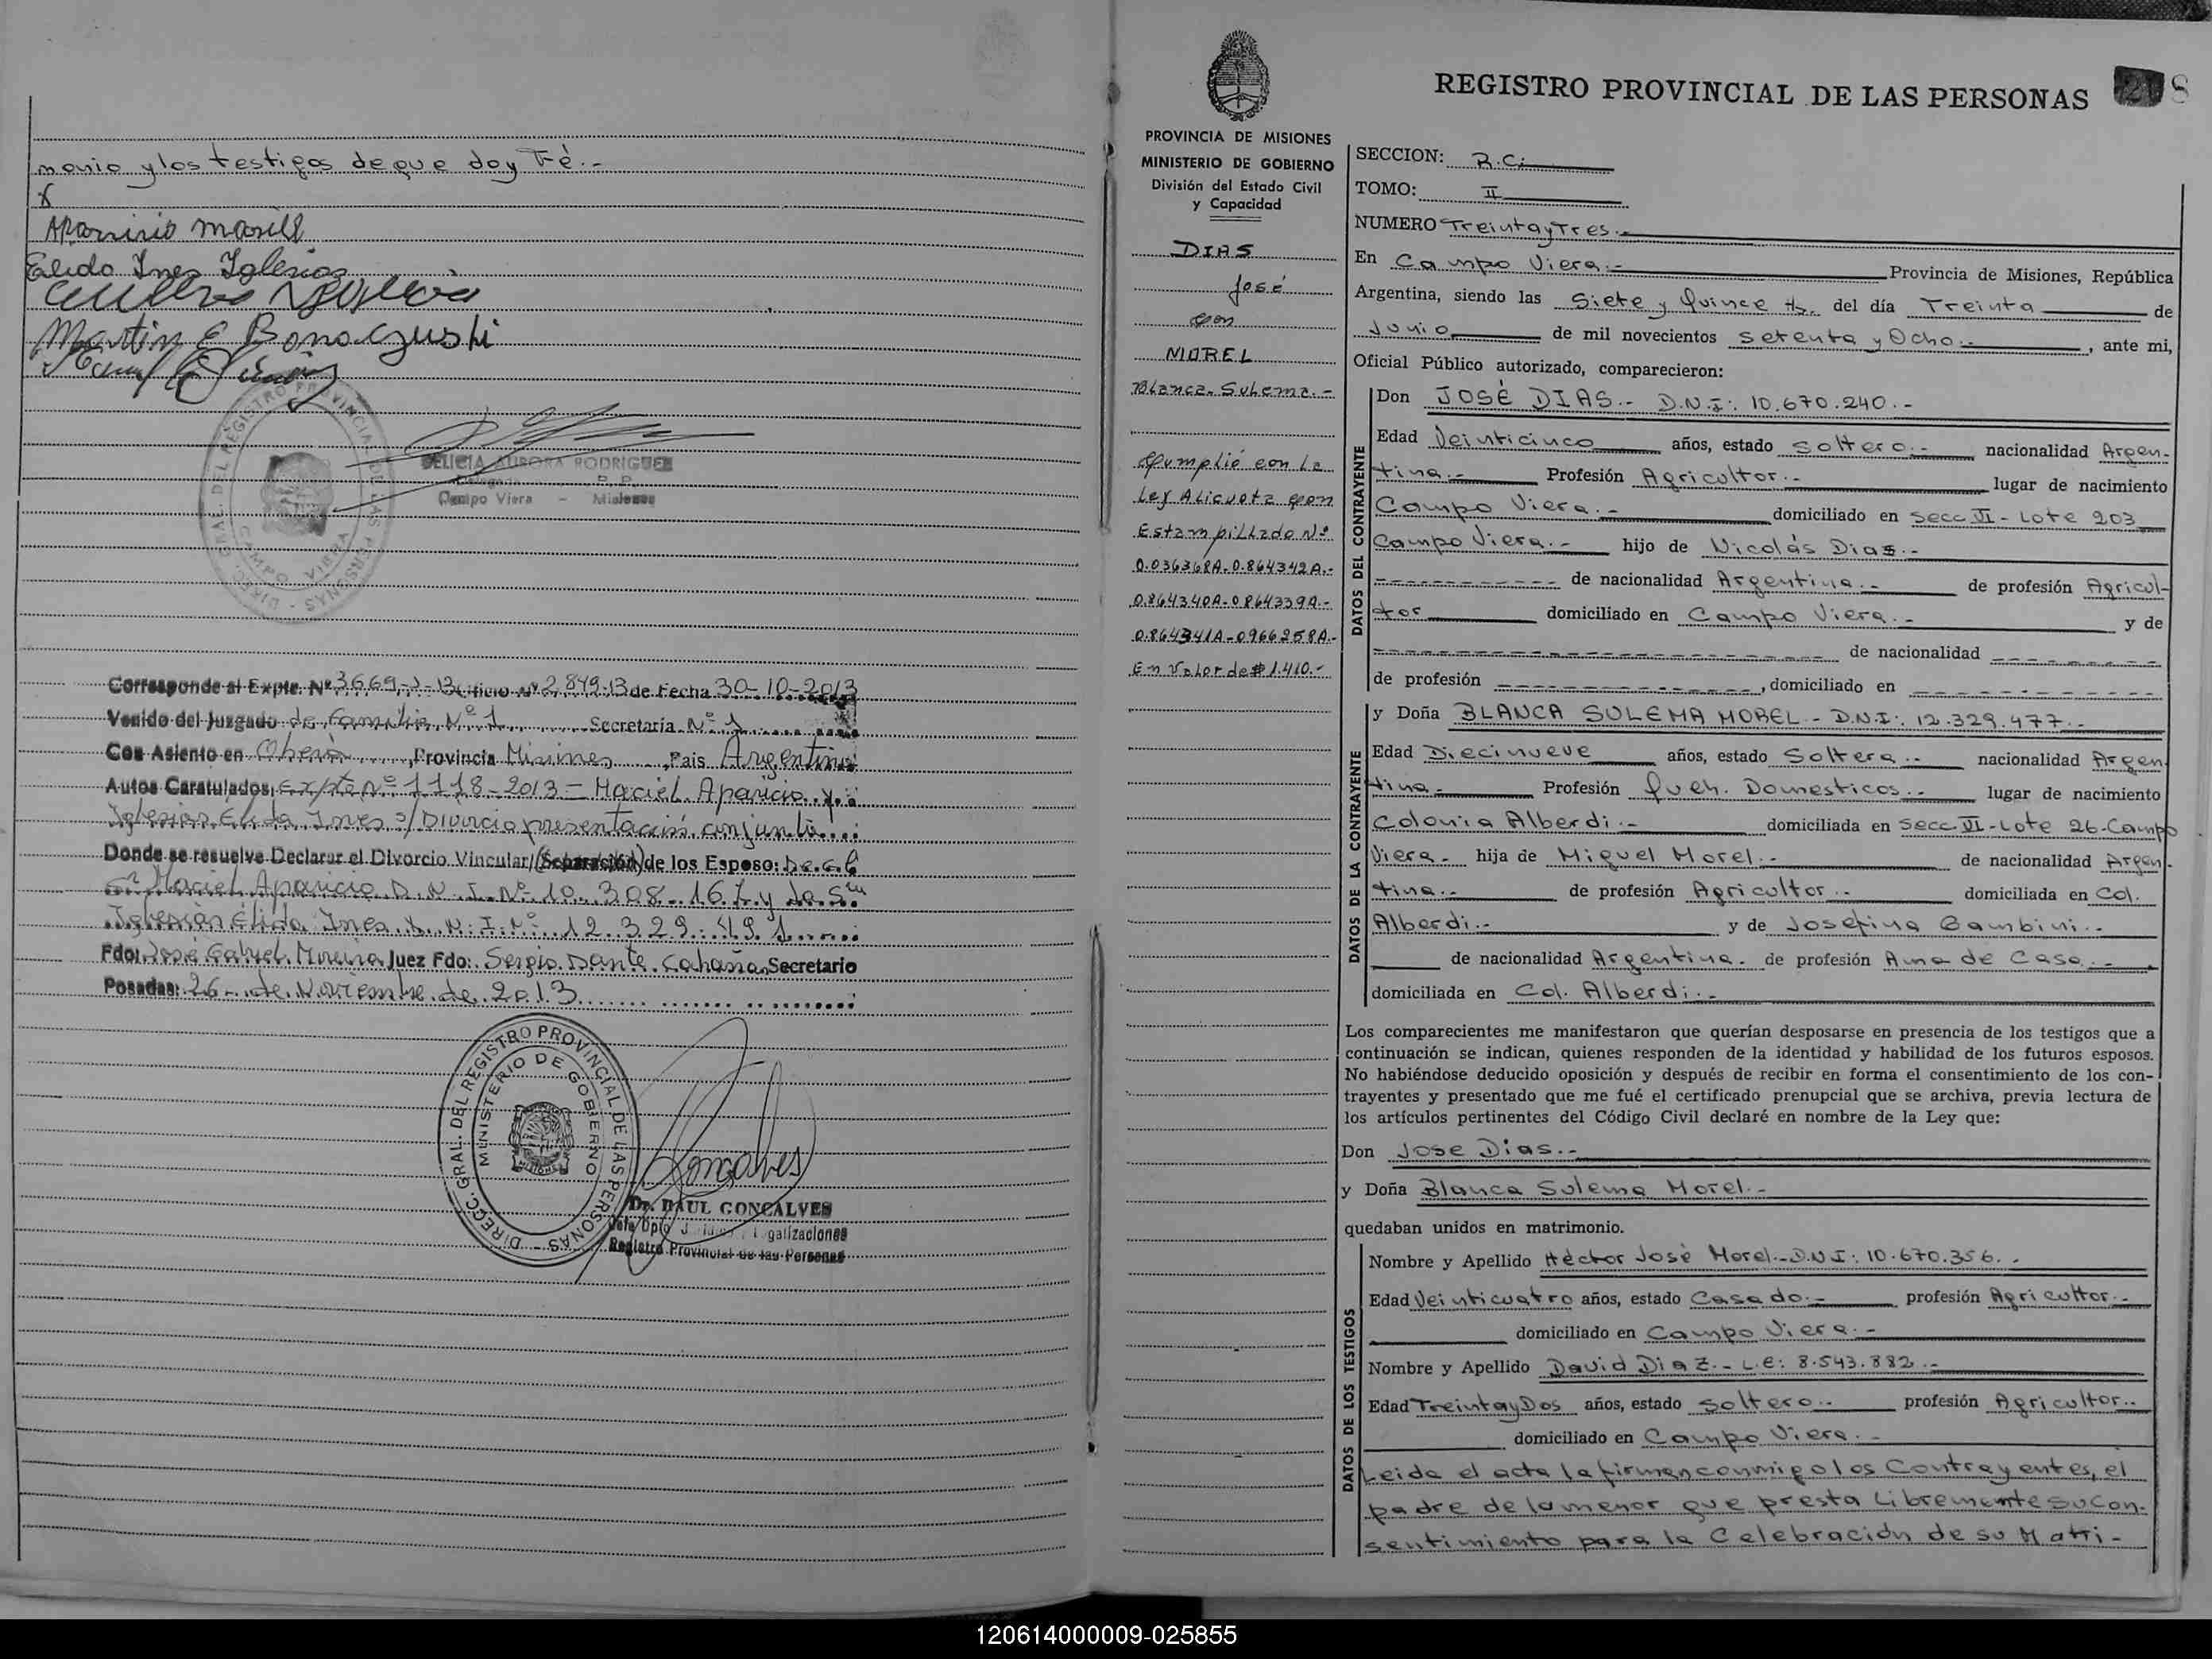 monio y los testigos de que doy Fé.-
Martin E Bonaczuski
DIREC. GRAL. DEL REGISTRO PROVINCIAL DE LAS PERSONAS
CAMPO VIERA
DELICIA AURORA RODRIGUEZ
Delegada
Campo Viera - Misiones
Corresponde al Expte. Nº 3669-J-13 Oficio Nº 2.849-13 de Fecha 30-10-2013
Venido del Juzgado de Familia Nº 1 Secretaría Nº 1
Con Asiento en Oberá, Provincia Misiones, Pais Argentina
Autos Caratulados: Expte Nº 1118-2013 - Maciel Aparicio y
Iglesias Elida Ines s/ Divorcio presentación conjunta
Donde se resuelve Declarar el Divorcio Vincular/(Separación) de los Esposo: De el
Sr Maciel Aparicio D.N.I. Nº 10.308.167 y la Sra
Iglesias Élida Ines D.N.I. Nº 12.329.491
Fdo: José Gabriel Moreira Juez Fdo: Sergio Dante Cabaña Secretario
Posadas: 26 de Noviembre de 2013
DIRECC. GRAL. DEL REGISTRO PROVINCIAL DE LAS PERSONAS
MINISTERIO DE GOBIERNO
MISIONES
Dr. RAUL GONCALVES
Registro Provincial de las Personas
REGISTRO PROVINCIAL DE LAS PERSONAS
PROVINCIA DE MISIONES
MINISTERIO DE GOBIERNO
División del Estado Civil
y Capacidad
DIAS
José
con
MOREL
Blanca Sulema.-
Cumplió con la
Ley Alicuota con
Estampillado Nº
0.036368A-0.864342A.-
0.864340A-0864339A.-
0.864341A-0966258A.-
En Valor de $ 1.410.-
SECCION: R.C.
TOMO: II
NUMERO Treinta y Tres.-
En Campo Viera.- Provincia de Misiones, República
Argentina, siendo las Siete y Quince Hs. del día Treinta de
Junio de mil novecientos setenta y Ocho.-, ante mi,
Oficial Público autorizado, comparecieron:
DATOS DEL CONTRAYENTE
Don JOSÉ DIAS.- D.N.I: 10.670.240.-
Edad Veinticinco años, estado soltero.- nacionalidad Argen-
tina.- Profesión Agricultor.- lugar de nacimiento
Campo Viera.- domiciliado en Secc VI - Lote 203
Campo Viera.- hijo de Nicolás Dias.-
de nacionalidad Argentina.- de profesión Agricul-
tor domiciliado en Campo Viera.- y de
de nacionalidad
de profesión , domiciliado en
DATOS DE LA CONTRAYENTE
y Doña BLANCA SULEMA MOREL.- D.N.I: 12.329.477.-
Edad Diecinueve años, estado Soltera.- nacionalidad Argen
tina.- Profesión Queh. Domesticos.- lugar de nacimiento
Colonia Alberdi.- domiciliada en Secc. VI-Lote 26-Campo
Viera.- hija de Miguel Morel.- de nacionalidad Argen-
tina.- de profesión Agricultor.- domiciliada en Col.
Alberdi.- y de Josefina Gambini.-
de nacionalidad Argentina.- de profesión Ama de Casa.-
domiciliada en Col. Alberdi.-
Los comparecientes me manifestaron que querían desposarse en presencia de los testigos que a
continuación se indican, quienes responden de la identidad y habilidad de los futuros esposos.
No habiéndose deducido oposición y después de recibir en forma el consentimiento de los con-
trayentes y presentado que me fué el certificado prenupcial que se archiva, previa lectura de
los artículos pertinentes del Código Civil declaré en nombre de la Ley que:
Don Jose Dias.-
y Doña Blanca Sulema Morel.-
quedaban unidos en matrimonio.
DATOS DE LOS TESTIGOS
Nombre y Apellido Héctor José Morel.-D.N.I: 10.670.356.-
Edad Veinticuatro años, estado Casado.- profesión Agricultor.-
domiciliado en Campo Viera.-
Nombre y Apellido David Diaz.- L.e: 8.543.882.-
Edad Treinta y Dos años, estado soltero.- profesión Agricultor.-
domiciliado en Campo Viera.-
Leida el acta la firman conmigo los Contrayentes, el
padre de la menor que presta libremente su con-
sentimiento para la Celebración de su Matri-
120614000009-025855